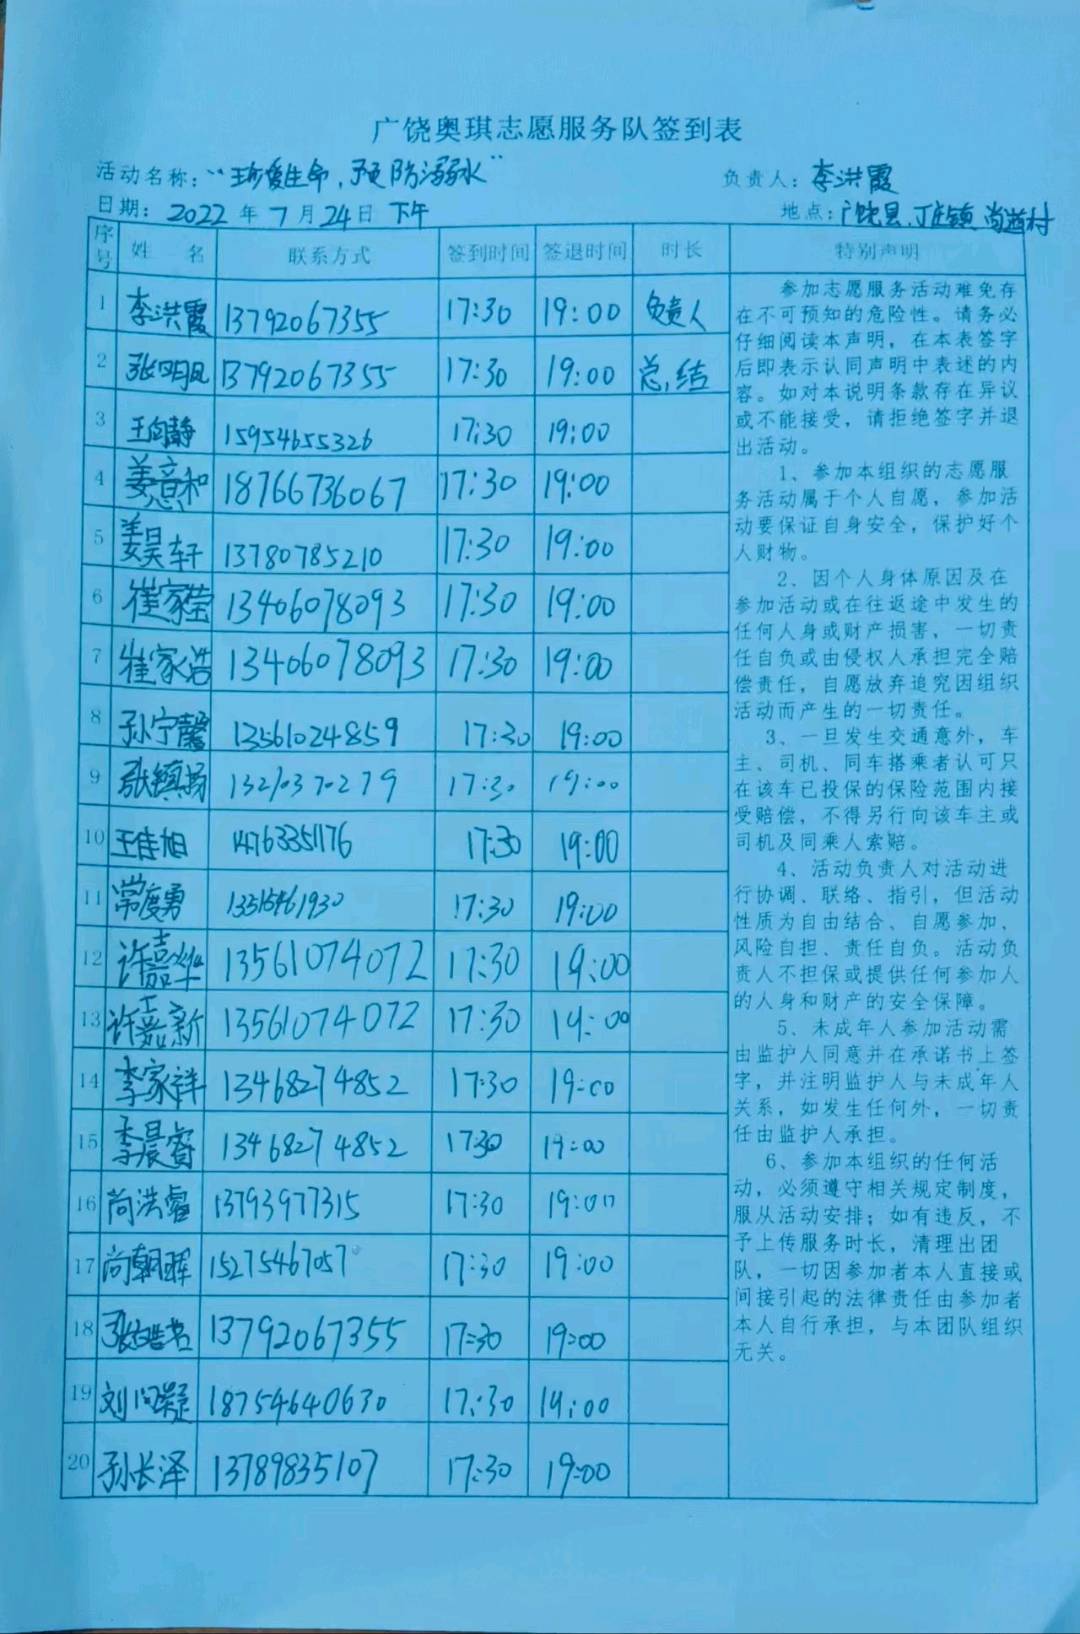 广饶奥琪志愿服务队签到表
活动名称：“珍爱生命，预防溺水” 负责人：李洪霞
日期：2022年7月24日 下午 地点：广饶县、丁庄镇 尚道村
序号 姓 名 联系方式 签到时间 签退时间 时长 特别声明
1 李洪霞 13792067355 17:30 19:00 负责人
2 张明凤 13792067355 17:30 19:00 总结
3 王向静 15954655326 17:30 19:00
4 姜意和 18766736067 17:30 19:00
5 姜昊轩 13780785210 17:30 19:00
6 崔家莹 13406078093 17:30 19:00
7 崔家浩 13406078093 17:30 19:00
8 孙宁馨 13561024859 17:30 19:00
9 张镇扬 17:30 19:00
10 王佳旭 14763351176 17:30 19:00
11 常度勇 17:30 19:00
12 许嘉烨 13561074072 17:30 19:00
13 许嘉新 13561074072 17:30 19:00
14 李家祥 13468274852 17:30 19:00
15 李晨睿 13468274852 17:30 19:00
16 尚洪睿 13793977315 17:30 19:00
17 尚朝晖 15275467057 17:30 19:00
18 13792067355 17:30 19:00
19 刘问凝 18754640630 17:30 19:00
20 孙长泽 13789835107 17:30 19:00
参加志愿服务活动难免存
在不可预知的危险性。请务必
仔细阅读本声明，在本表签字
后即表示认同声明中表述的内
容。如对本说明条款存在异议
或不能接受，请拒绝签字并退
出活动。
1、参加本组织的志愿服
务活动属于个人自愿，参加活
动要保证自身安全，保护好个
人财物。
2、因个人身体原因及在
参加活动或在往返途中发生的
任何人身或财产损害，一切责
任自负或由侵权人承担完全赔
偿责任，自愿放弃追究因组织
活动而产生的一切责任。
3、一旦发生交通意外，车
主、司机、同车搭乘者认可只
在该车已投保的保险范围内接
受赔偿，不得另行向该车主或
司机及同乘人索赔。
4、活动负责人对活动进
行协调、联络、指引，但活动
性质为自由结合、自愿参加、
风险自担、责任自负。活动负
责人不担保或提供任何参加人
的人身和财产的安全保障。
5、未成年人参加活动需
由监护人同意并在承诺书上签
字，并注明监护人与未成年人
关系，如发生任何外，一切责
任由监护人承担。
6、参加本组织的任何活
动，必须遵守相关规定制度，
服从活动安排；如有违反，不
予上传服务时长，清理出团
队，一切因参加者本人直接或
间接引起的法律责任由参加者
本人自行承担，与本团队组织
无关。